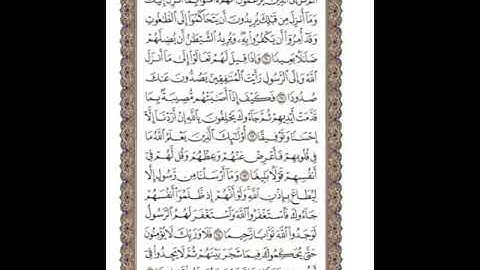 أَلَمْ تَرَ إِلَى ٱلَّذِينَ يَزْعُمُونَ أَنَّهُمْ ءَامَنُوا۟ بِمَآ أُنزِلَ إِلَيْكَ
وَمَآ أُنزِلَ مِن قَبْلِكَ يُرِيدُونَ أَن يَتَحَاكَمُوٓا۟ إِلَى ٱلطَّٰغُوتِ
وَقَدْ أُمِرُوٓا۟ أَن يَكْفُرُوا۟ بِهِۦ وَيُرِيدُ ٱلشَّيْطَٰنُ أَن يُضِلَّهُمْ
ضَلَٰلًۢا بَعِيدًا ۝٦٠ وَإِذَا قِيلَ لَهُمْ تَعَالَوْا۟ إِلَىٰ مَآ أَنزَلَ
ٱللَّهُ وَإِلَى ٱلرَّسُولِ رَأَيْتَ ٱلْمُنَٰفِقِينَ يَصُدُّونَ عَنكَ
صُدُودًا ۝٦١ فَكَيْفَ إِذَآ أَصَٰبَتْهُم مُّصِيبَةٌۢ بِمَا
قَدَّمَتْ أَيْدِيهِمْ ثُمَّ جَآءُوكَ يَحْلِفُونَ بِٱللَّهِ إِنْ أَرَدْنَآ إِلَّآ
إِحْسَٰنًا وَتَوْفِيقًا ۝٦٢ أُو۟لَٰٓئِكَ ٱلَّذِينَ يَعْلَمُ ٱللَّهُ مَا
فِى قُلُوبِهِمْ فَأَعْرِضْ عَنْهُمْ وَعِظْهُمْ وَقُل لَّهُمْ فِىٓ
أَنفُسِهِمْ قَوْلًۢا بَلِيغًا ۝٦٣ وَمَآ أَرْسَلْنَا مِن رَّسُولٍ إِلَّا
لِيُطَاعَ بِإِذْنِ ٱللَّهِ وَلَوْ أَنَّهُمْ إِذ ظَّلَمُوٓا۟ أَنفُسَهُمْ
جَآءُوكَ فَٱسْتَغْفَرُوا۟ ٱللَّهَ وَٱسْتَغْفَرَ لَهُمُ ٱلرَّسُولُ
لَوَجَدُوا۟ ٱللَّهَ تَوَّابًا رَّحِيمًا ۝٦٤ فَلَا وَرَبِّكَ لَا يُؤْمِنُونَ
حَتَّىٰ يُحَكِّمُوكَ فِيمَا شَجَرَ بَيْنَهُمْ ثُمَّ لَا يَجِدُوا۟ فِىٓ